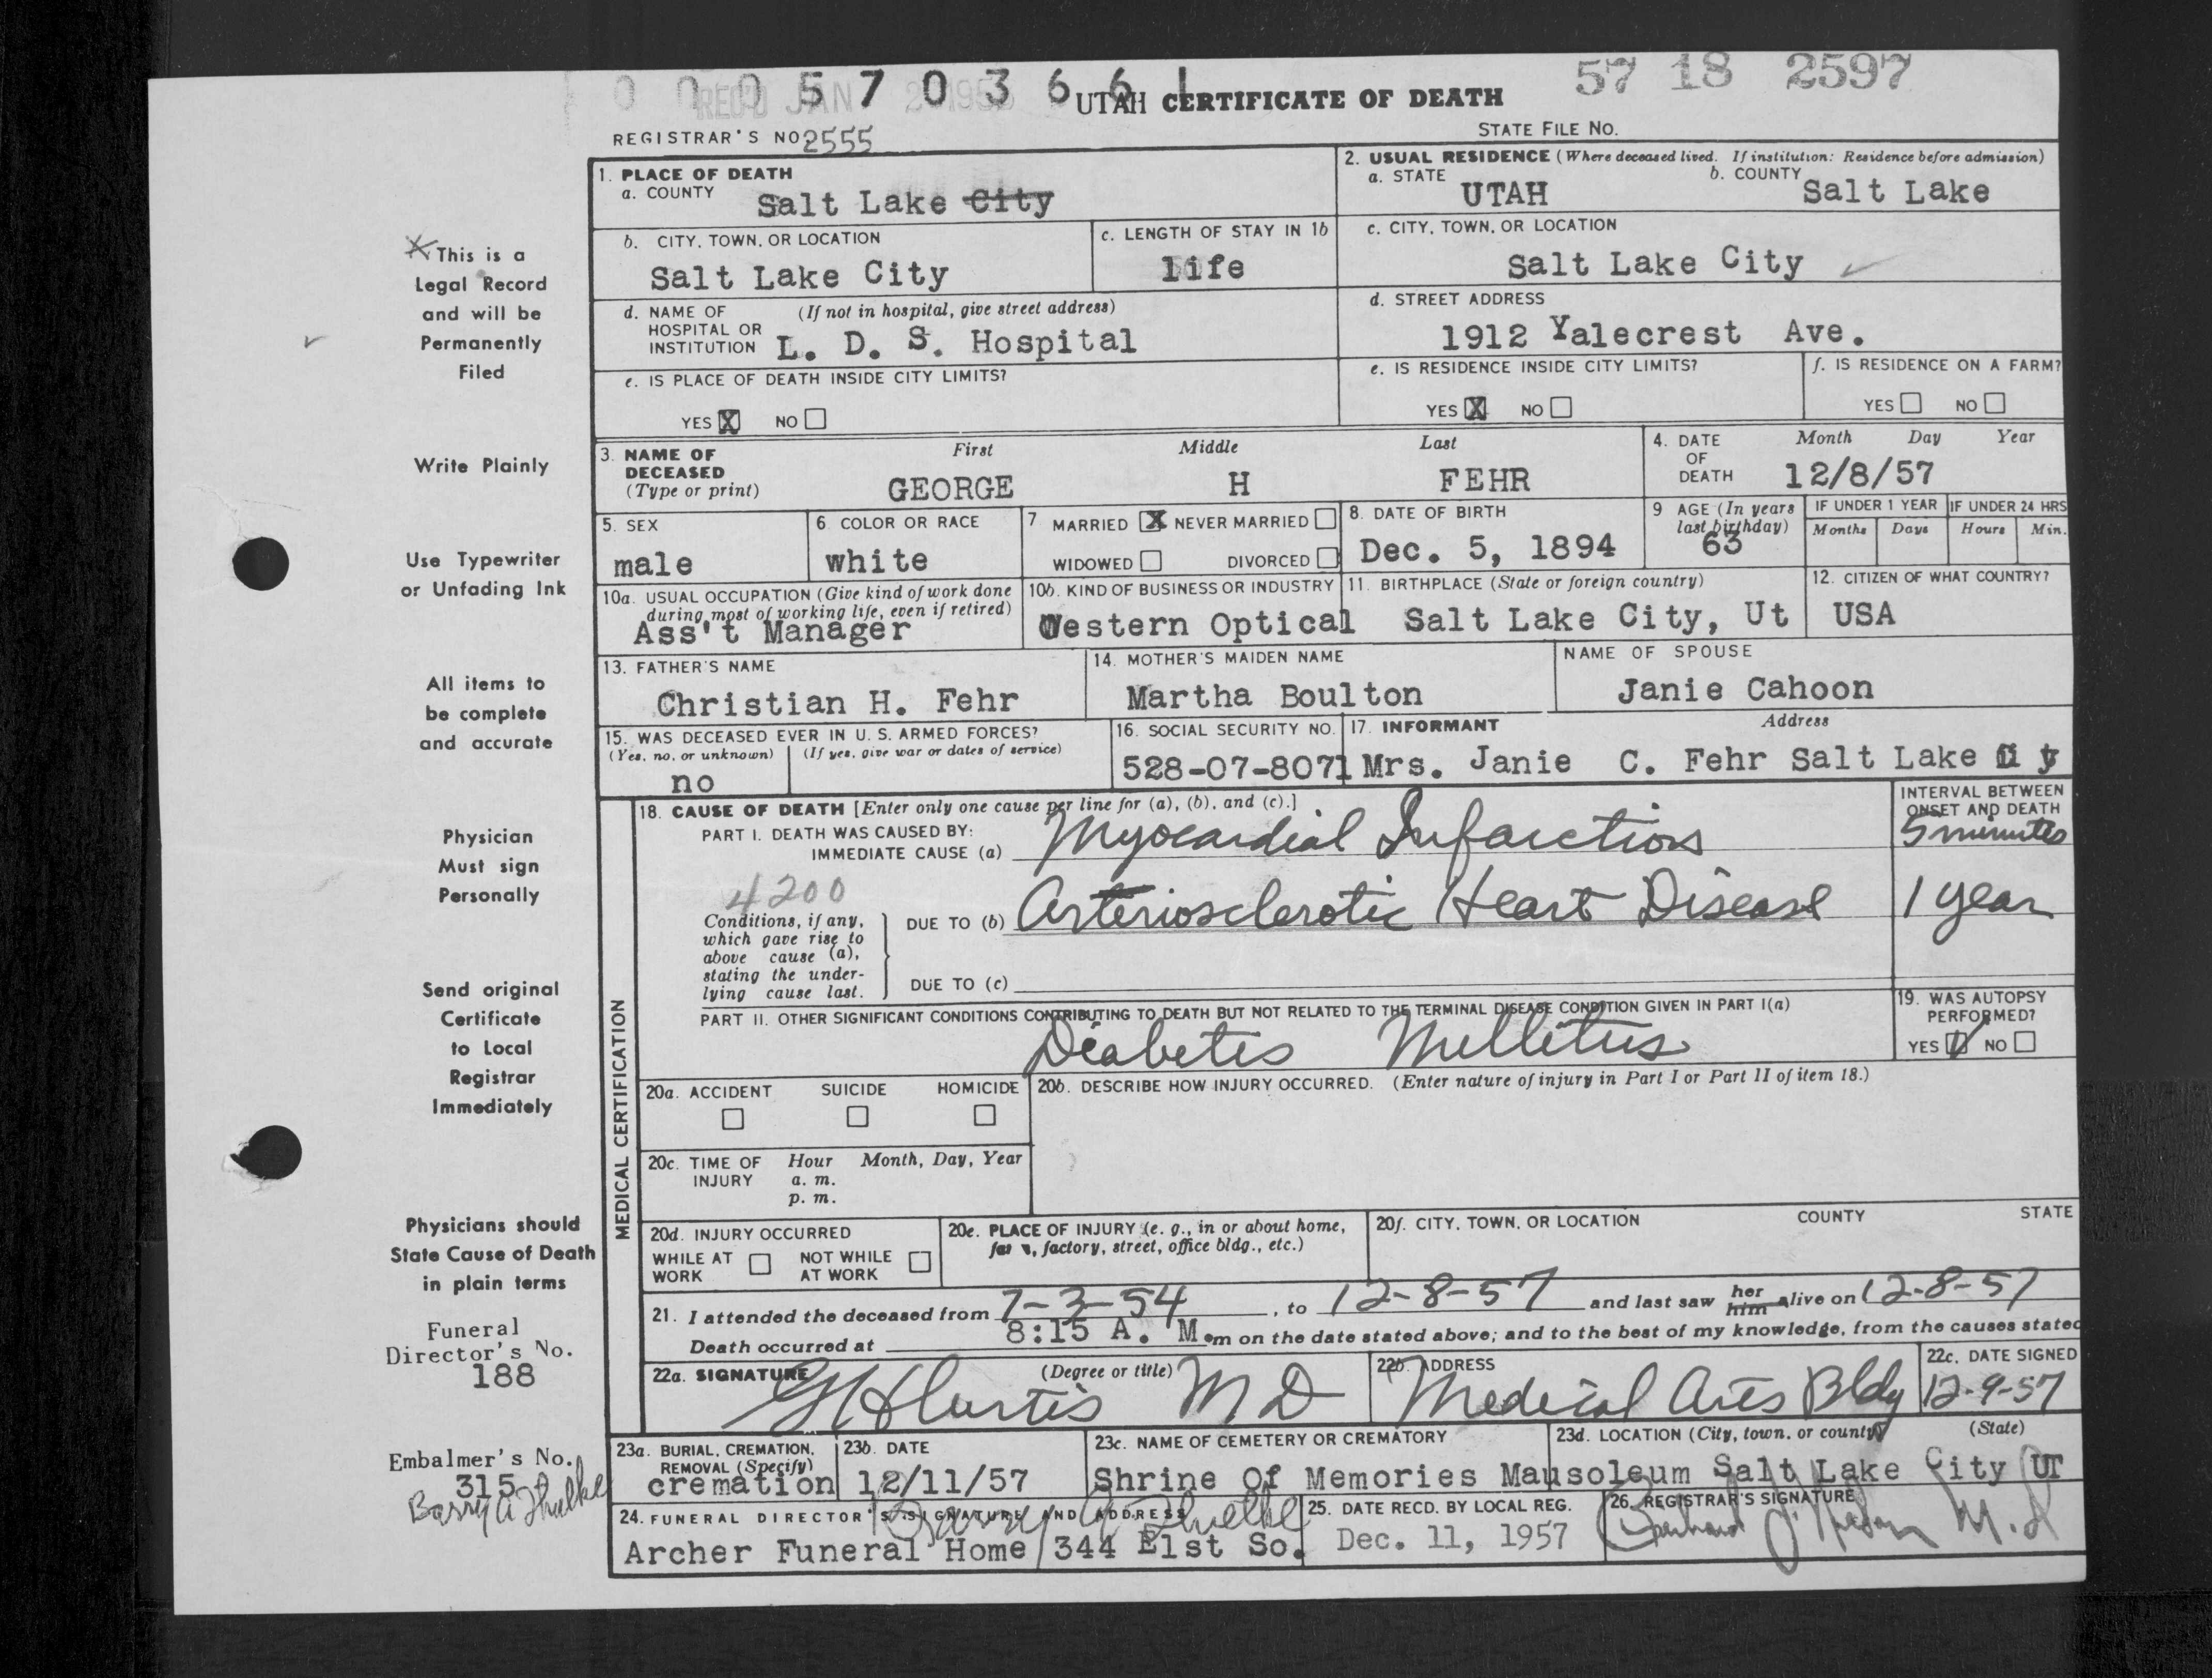 0 0 0 5 7 0 3 6 6 1
REC'D JAN 2 195
57 18 2597
UTAH CERTIFICATE OF DEATH
REGISTRAR'S NO 2555
STATE FILE NO.
1. PLACE OF DEATH
a. COUNTY Salt Lake City
2. USUAL RESIDENCE (Where deceased lived. If institution: Residence before admission)
a. STATE UTAH b. COUNTY Salt Lake
b. CITY, TOWN, OR LOCATION Salt Lake City
c. LENGTH OF STAY IN 1b life
c. CITY, TOWN, OR LOCATION Salt Lake City
d. NAME OF HOSPITAL OR INSTITUTION (If not in hospital, give street address) L. D. S. Hospital
d. STREET ADDRESS 1912 Yalecrest Ave.
e. IS PLACE OF DEATH INSIDE CITY LIMITS?
YES X NO
e. IS RESIDENCE INSIDE CITY LIMITS?
YES X NO
f. IS RESIDENCE ON A FARM?
YES NO
3. NAME OF DECEASED (Type or print)
First Middle Last
GEORGE H FEHR
4. DATE OF DEATH Month Day Year
12/8/57
5. SEX male
6. COLOR OR RACE white
7 MARRIED X NEVER MARRIED
WIDOWED DIVORCED
8. DATE OF BIRTH Dec. 5, 1894
9 AGE (In years last birthday) 63
IF UNDER 1 YEAR Months Days
IF UNDER 24 HRS Hours Min.
10a. USUAL OCCUPATION (Give kind of work done during most of working life, even if retired)
Ass't Manager
10b. KIND OF BUSINESS OR INDUSTRY
Western Optical
11. BIRTHPLACE (State or foreign country)
Salt Lake City, Ut
12. CITIZEN OF WHAT COUNTRY?
USA
13. FATHER'S NAME
Christian H. Fehr
14. MOTHER'S MAIDEN NAME
Martha Boulton
NAME OF SPOUSE
Janie Cahoon
15. WAS DECEASED EVER IN U. S. ARMED FORCES?
(Yes, no, or unknown) (If yes, give war or dates of service)
no
16. SOCIAL SECURITY NO.
528-07-8071
17. INFORMANT Address
Mrs. Janie C. Fehr Salt Lake
MEDICAL CERTIFICATION
18. CAUSE OF DEATH [Enter only one cause per line for (a), (b), and (c).]
INTERVAL BETWEEN ONSET AND DEATH
PART I. DEATH WAS CAUSED BY:
IMMEDIATE CAUSE (a) Myocardial Infarction 5 minutes
4200
Conditions, if any, which gave rise to above cause (a), stating the underlying cause last.
DUE TO (b) Arteriosclerotic Heart Disease 1 year
DUE TO (c)
PART II. OTHER SIGNIFICANT CONDITIONS CONTRIBUTING TO DEATH BUT NOT RELATED TO THE TERMINAL DISEASE CONDITION GIVEN IN PART I(a)
Diabetes Mellitus
19. WAS AUTOPSY PERFORMED?
YES NO
20a. ACCIDENT SUICIDE HOMICIDE
20b. DESCRIBE HOW INJURY OCCURRED. (Enter nature of injury in Part I or Part II of item 18.)
20c. TIME OF INJURY Hour Month, Day, Year
a. m.
p. m.
20d. INJURY OCCURRED
WHILE AT WORK NOT WHILE AT WORK
20e. PLACE OF INJURY (e. g., in or about home, factory, street, office bldg., etc.)
20f. CITY, TOWN, OR LOCATION COUNTY STATE
21. I attended the deceased from 7-3-54, to 12-8-57 and last saw her him alive on 12-8-57
Death occurred at 8:15 A. M.m on the date stated above; and to the best of my knowledge, from the causes stated
22a. SIGNATURE (Degree or title)
G H Curtis M D
22b. ADDRESS
Medical Arts Bldg
22c. DATE SIGNED
12-9-57
23a. BURIAL, CREMATION, REMOVAL (Specify)
cremation
23b. DATE
12/11/57
23c. NAME OF CEMETERY OR CREMATORY
Shrine Of Memories Mausoleum
23d. LOCATION (City, town, or county) (State)
Salt Lake City UT
24. FUNERAL DIRECTOR'S SIGNATURE AND ADDRESS
Archer Funeral Home 344 E1st So.
25. DATE RECD. BY LOCAL REG.
Dec. 11, 1957
26. REGISTRAR'S SIGNATURE
M.D
This is a
Legal Record
and will be
Permanently
Filed
Write Plainly
Use Typewriter
or Unfading Ink
All items to
be complete
and accurate
Physician
Must sign
Personally
Send original
Certificate
to Local
Registrar
Immediately
Physicians should
State Cause of Death
in plain terms
Funeral
Director's No.
188
Embalmer's No.
315